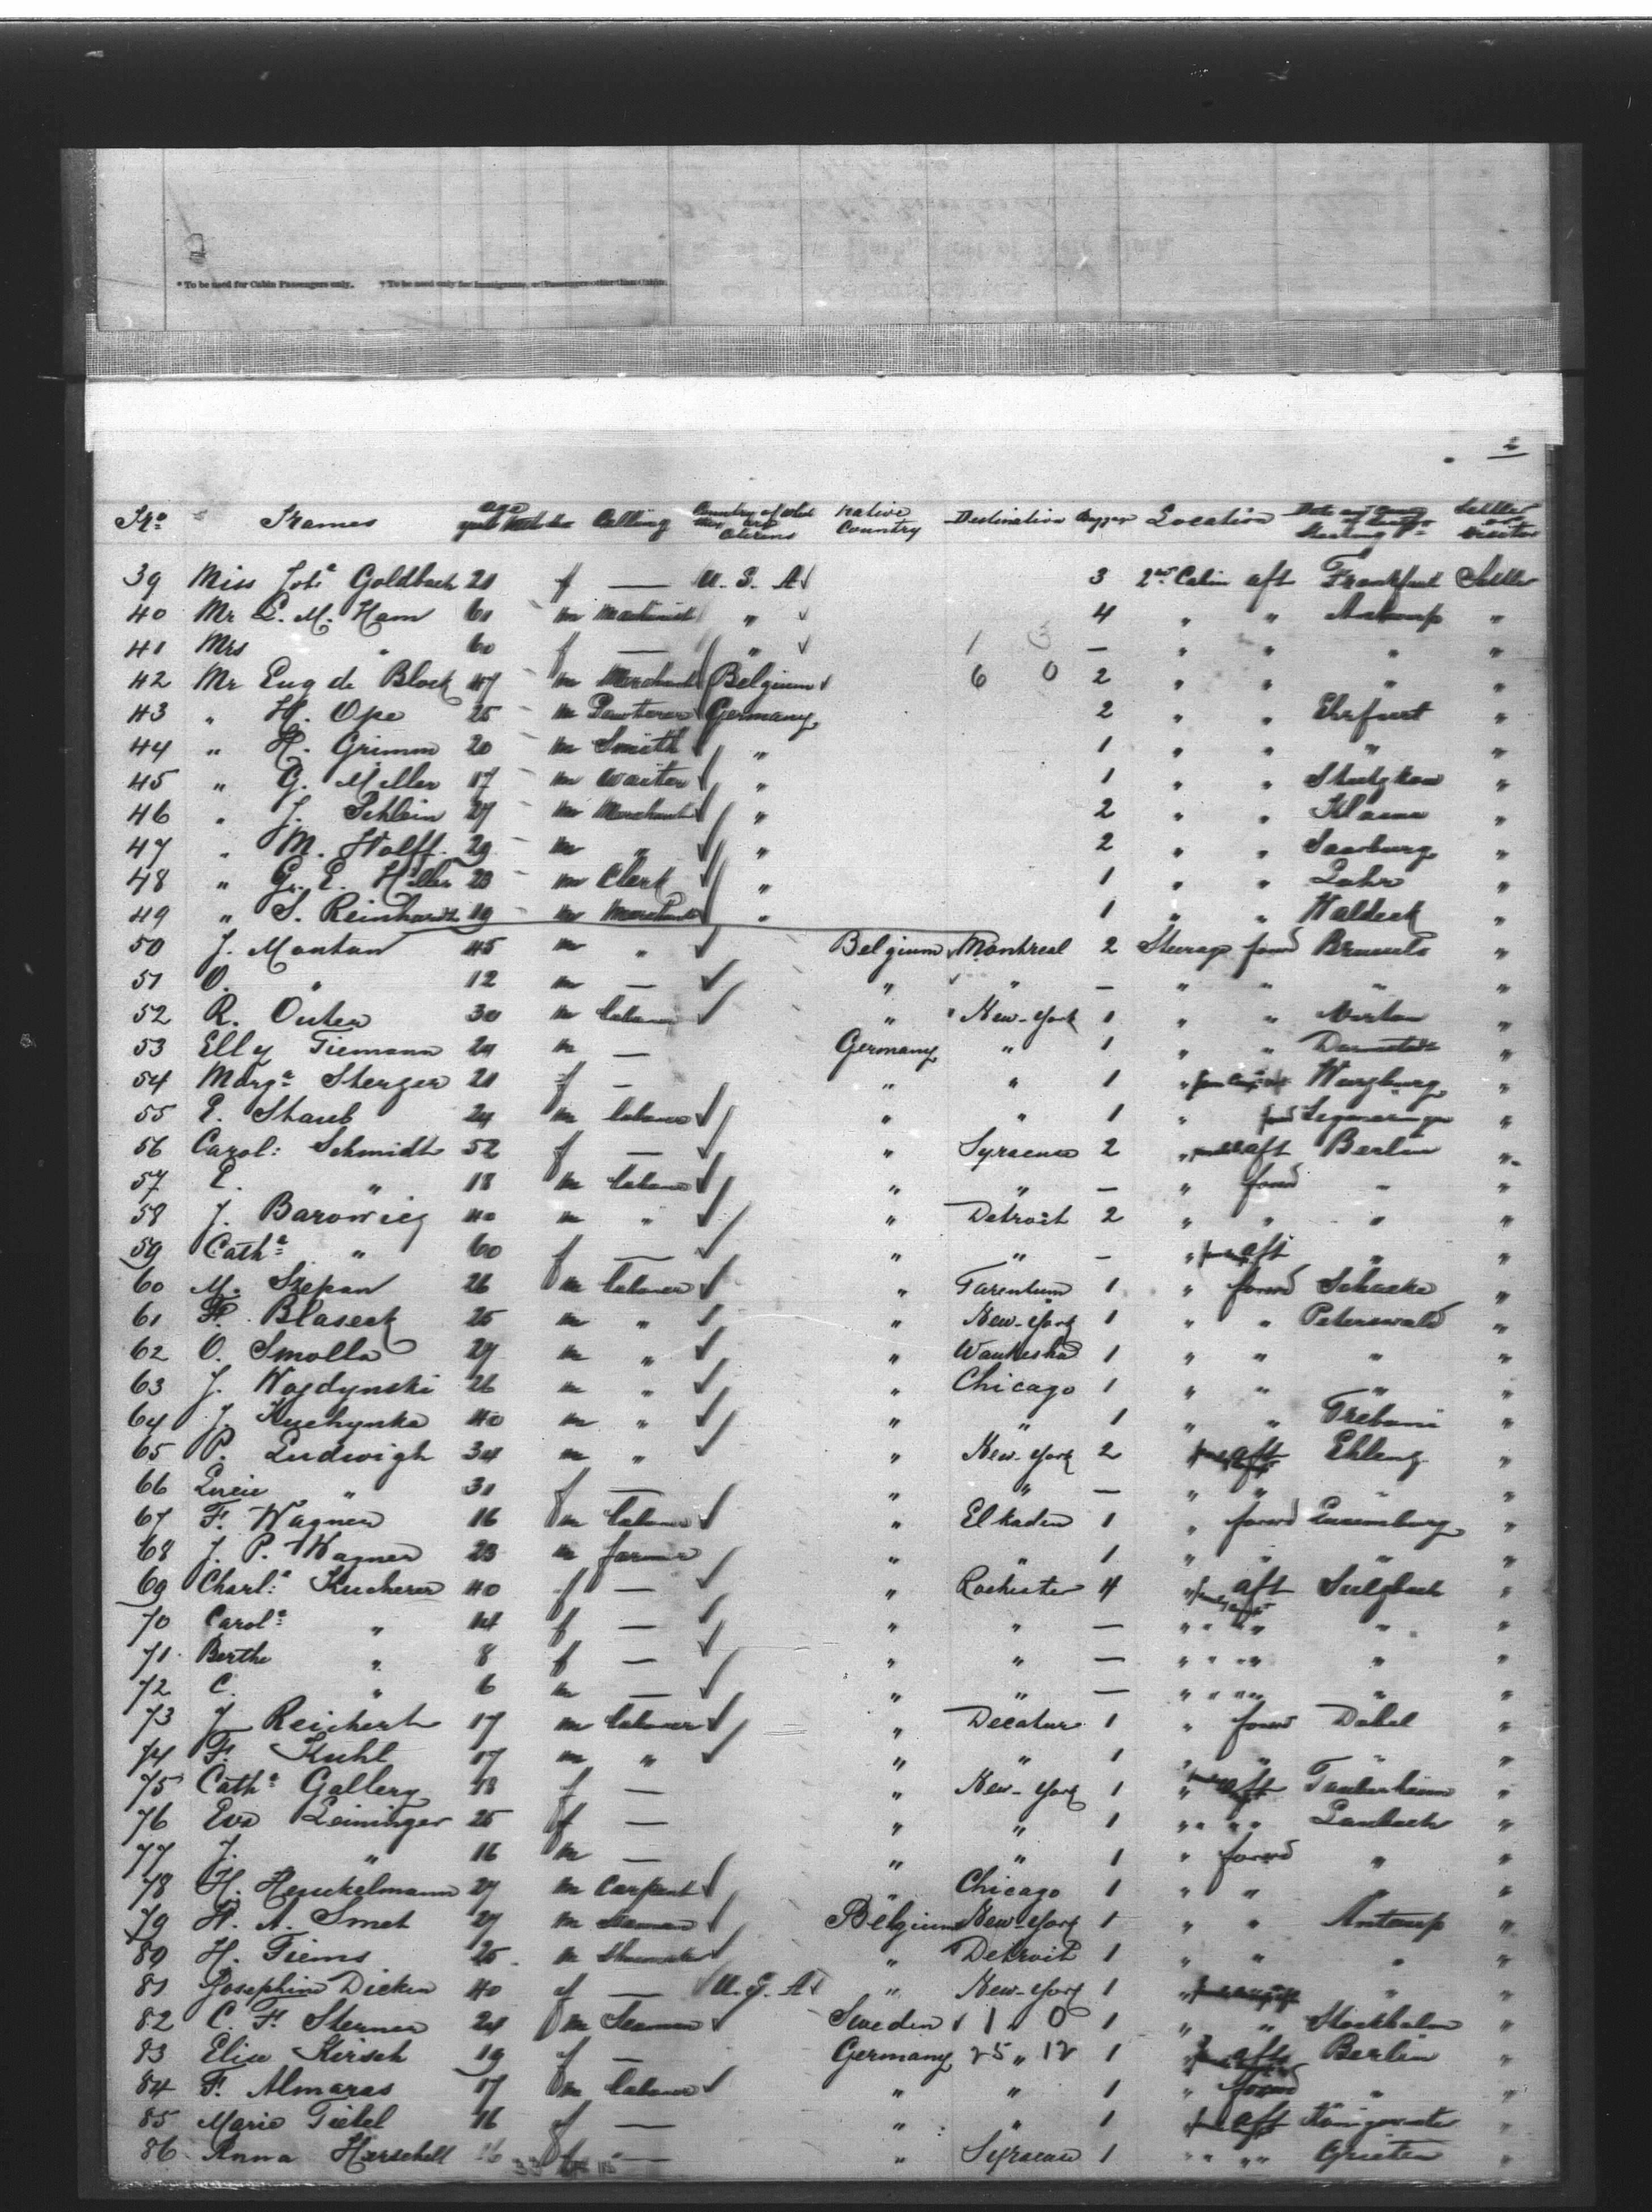 * To be used for Cabin Passengers only. † To be used only for Immigrants, or Passengers other than Cabin.
2
No. Names age years Calling Country of which they are Citizens native Country Destination Location Settler or Visitor
39 Miss Joha Goldbach 21 f — U. S. A 3 2nd Cabin aft Frankfurt Settler
40 Mr E. M. Ham 61 m Machinist " 4 " " Antwerp "
41 Mrs " 60 f — " 1 3 — " " " "
42 Mr Eug de Block 47 m Merchant Belgium 6 0 2 " " " "
43 " H. Ope 25 m Germany 2 " " Ehrfurt "
44 " H. Grimm 20 m Smith " 1 " " " "
45 " G. Miller 17 m waiter " 1 " " "
46 " J. Schloin 27 m Merchant " 2 " " "
47 " M. Wolff 29 m " " 2 " " Saarburg "
48 " G. E. Hiller 23 m Clerk " 1 " " Lahr "
49 " S. Reinhardt 19 m Merchant " 1 " " Waldeck "
50 J. Montan 45 m " Belgium Montreal 2 Steerage forwd Brussels "
51 O. " 12 m — " " — " " " "
52 R. Outer 30 m laborer " New-York 1 " " Virton "
53 Elly Tiemann 21 m — Germany " 1 " " Darmstadt "
54 Marga Sterger 21 f — " " 1 " Wurzburg "
55 E. Staub 24 m laborer " " 1 " forwd "
56 Carol: Schmidt 52 f — " Syracuse 2 " aft Berlin "
57 E. " 18 m laborer " " — " forwd " "
58 J. Barowieg 40 m " " Detroit 2 " " " "
59 Catha " 60 f — " " — " aft " "
60 M. Szepan 26 m laborer " Tarentum 1 " forwd "
61 F. Blaseck 25 m " " New-York 1 " " Peterswald "
62 O. Smolla 27 m " " Waukesha 1 " " " "
63 J. Wojdynski 26 m " " Chicago 1 " " " "
64 J. Kuchynka 40 m " " " 1 " " "
65 P. Ludwigh 34 m " " New-York 2 aft Ehleng "
66 " 31 f — " " — " " " "
67 F. Wagner 16 m laborer " Elkader 1 " forwd Luxemburg "
68 J. P. Wagner 23 m farmer " " 1 " " " "
69 Charl:a Kucherer 40 f — " Rochester 4 " aft Sulzbach "
70 Carola " 14 f — " " — " " " " " "
71 Berthe " 8 f — " " — " " " " " "
72 C. " 6 m — " " — " " " " " "
73 J. Reichert 17 m laborer " Decatur 1 " forwd Dobel "
74 F. Kuhl 17 m " " " 1 " " " "
75 Catha Gallery 18 f — " New-York 1 " aft "
76 Eva Leininger 25 f — " " 1 " " " " Laubach "
77 J. " 16 m — " " 1 " forwd " "
78 H. Henckelmann 27 m Carpent " Chicago 1 " " " "
79 A. Smet 27 m Seaman Belgium New-York 1 " " Antwerp "
80 H. Tiems 25 m " Detroit 1 " " " "
81 Josephine Dicken 40 f — U. S. A " New-York 1 " " "
82 C. F. Sterner 24 m Seaman Sweden 1 " 0 1 " " Stockholm "
83 Elise Kirsch 19 f — Germany 25 " 12 1 " aft Berlin "
84 F. Almaras 17 m laborer " " 1 " forwd " "
85 Marie Tietel 16 f — " " 1 aft "
86 Anna Herschell 26 f — " Syracuse 1 " " " " "